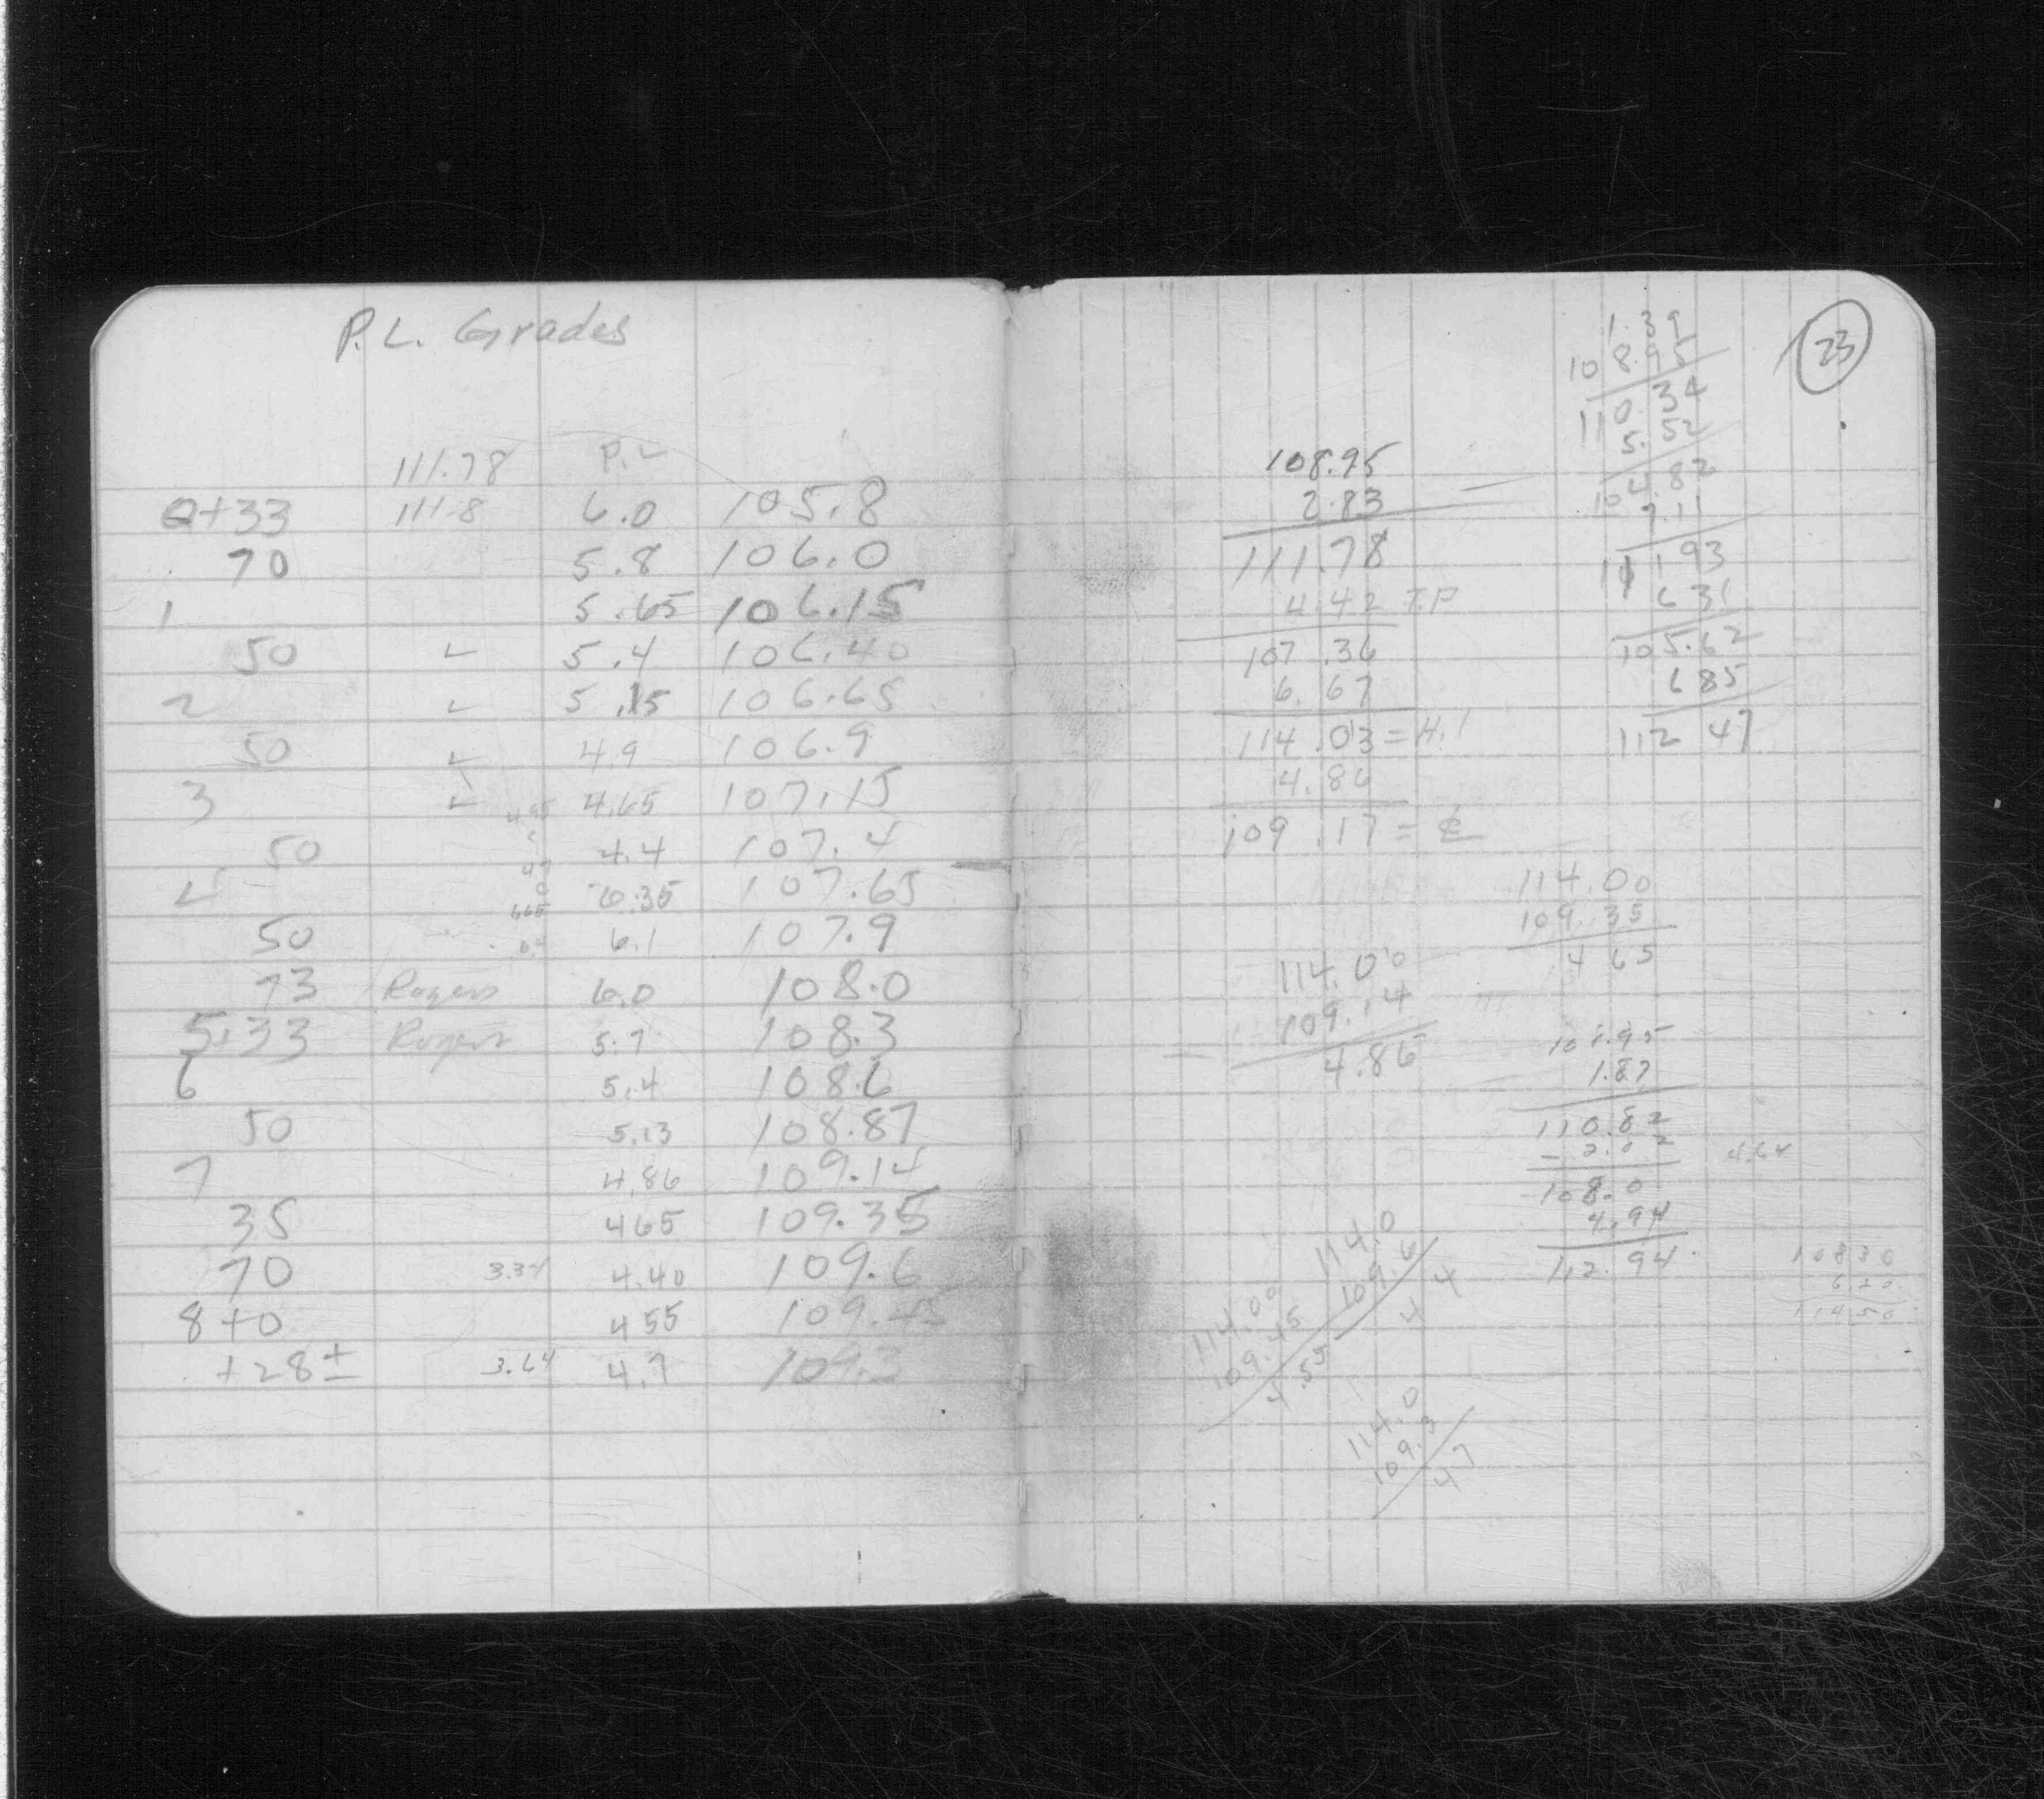 P.L. Grades
111.78 P.L
0+33 111.8 6.0 105.8
70 5.8 106.0
1 5.65 106.15
50 ✓ 5.4 106.40
2 ✓ 5.15 106.65
50 ✓ 4.9 106.9
3 ✓ 4.65 107.15
50 4.4 107.4
4 6.35 107.65
50 6.1 107.9
73 Rogers 6.0 108.0
5+33 Rogers 5.7 108.3
6 5.4 108.6
50 5.13 108.87
7 4.86 109.14
35 465 109.35
70 4.40 109.6
8+0 455 109.45
+28± 3.64 4.7 109.3
23
1.39
108.95
110.34
5.52
104.82
7.11
111.93
6 31
105.62
6 85
112 47
108.95
2.83
111.78
4.42 T.P
107.36
6.67
114.03 = H.I
4.86
109.17 = ℄
114.00
109.35
4 65
114.00
109.14
4.86
108.95
1.87
110.82
- 2.0 2
108.0
4.94
112.94
4.64
10830
6 20
11450
114.0
109.6
4 4
114.00
109.45
4.55
114.0
109.3
4 7